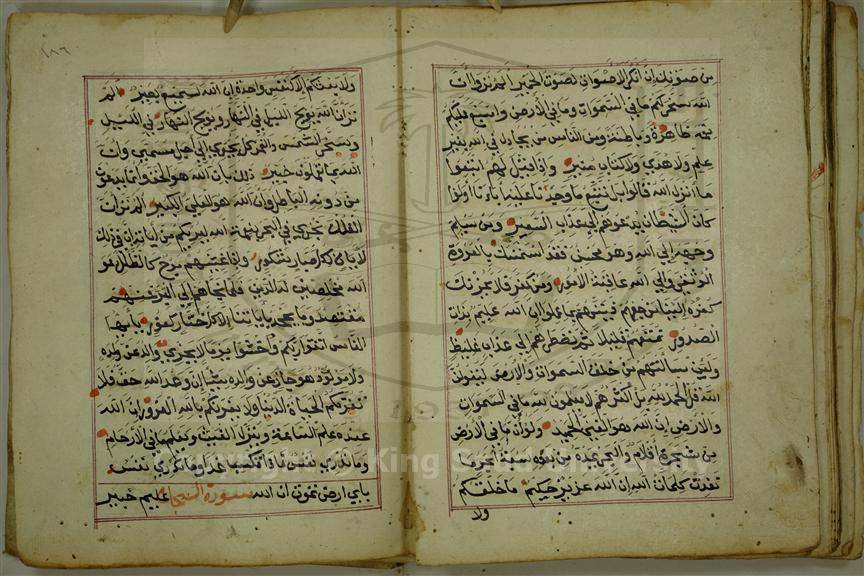 من صوتك إن أنكر الأصوات لصوت الحمير ألم تروا أن
الله سخر لكم ما في السموات وما في الأرض وأسبغ عليكم
نعمه ظاهرة وباطنة ومن الناس من يجادل في الله بغير
علم ولا هدى ولا كتاب منير وإذا قيل لهم اتبعوا
ما أنزل الله قالوا بل نتبع ما وجدنا عليه آباءنا أولو
كان الشيطان يدعوهم إلى عذاب السعير ومن يسلم
وجهه إلى الله وهو محسن فقد استمسك بالعروة
الوثقى وإلى الله عاقبة الأمور ومن كفر فلا يحزنك
كفره إلينا مرجعهم فننبئهم بما عملوا إن الله عليم بذات
الصدور نمتعهم قليلا ثم نضطرهم إلى عذاب غليظ
ولئن سألتهم من خلق السموات والأرض ليقولن
الله قل الحمد لله بل أكثرهم لا يعلمون لله ما في السموات
والأرض إن الله هو الغني الحميد ولو أن ما في الأرض
من شجرة أقلام والبحر يمده من بعده سبعة أبحر ما
نفدت كلمات الله إن الله عزيز حكيم ما خلقكم
ولا
١٨٦
ولا بعثكم إلا كنفس واحدة إن الله سميع بصير ألم
تر أن الله يولج الليل في النهار ويولج النهار في الليل
وسخر الشمس والقمر كل يجري إلى أجل مسمى وأن
الله بما تعملون خبير ذلك بأن الله هو الحق وأن ما يدعون
من دونه الباطل وأن الله هو العلي الكبير ألم تر أن
الفلك تجري في البحر بنعمة الله ليريكم من آياته إن في ذلك
لآيات لكل صبار شكور وإذا غشيهم موج كالظلل دعوا
الله مخلصين له الدين فلما نجاهم إلى البر فمنهم
مقتصد وما يجحد بآياتنا إلا كل ختار كفور يا أيها
الناس اتقوا ربكم واخشوا يوما لا يجزي والد عن ولده
ولا مولود هو جاز عن والده شيئا إن وعد الله حق فلا
تغرنكم الحياة الدنيا ولا يغرنكم بالله الغرور إن الله
عنده علم الساعة وينزل الغيث ويعلم ما في الأرحام
وما تدري نفس ماذا تكسب غدا وما تدري نفس
بأي أرض تموت إن الله عليم خبير
سورة السجدة